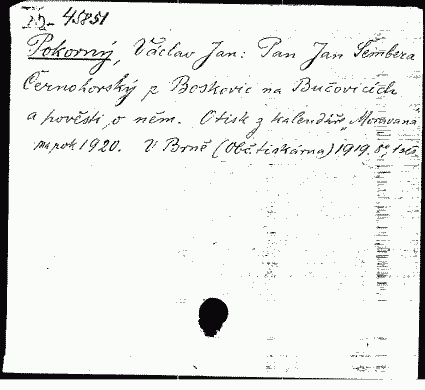 45851
Pokorný, Václav Jan: Pan Jan Šembera
Černohorský z Boskovic na Bučovicích
a pověsti o něm. Otisk z kalendáře „Moravana
na rok 1920. V Brně (Obč. tiskárna) 1919, 8°, 1 seš.